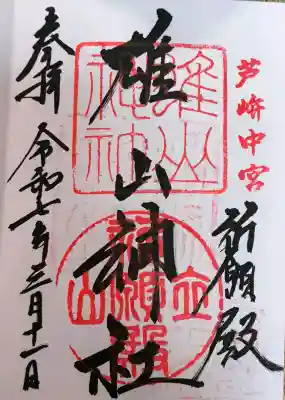 芦峅中宮
祈願殿
雄山神社
奉拝
令和七年三月十一日
雄山
神社
立山
祈願殿